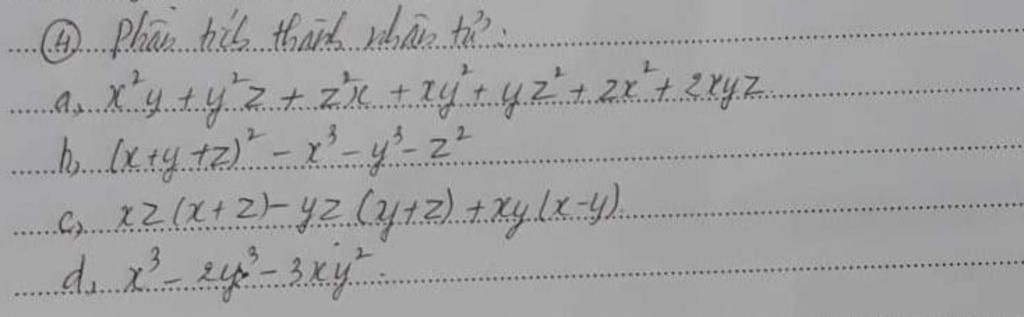 ④ Phân tích thành nhân tử:
a, x²y + y²z + z²x + xy² + yz² + zx² + 2xyz
b, (x+y+z)² - x³ - y³ - z²
c, xz(x+z) - yz(y+z) + xy(x-y)
d, x³ - 2y³ - 3xy²